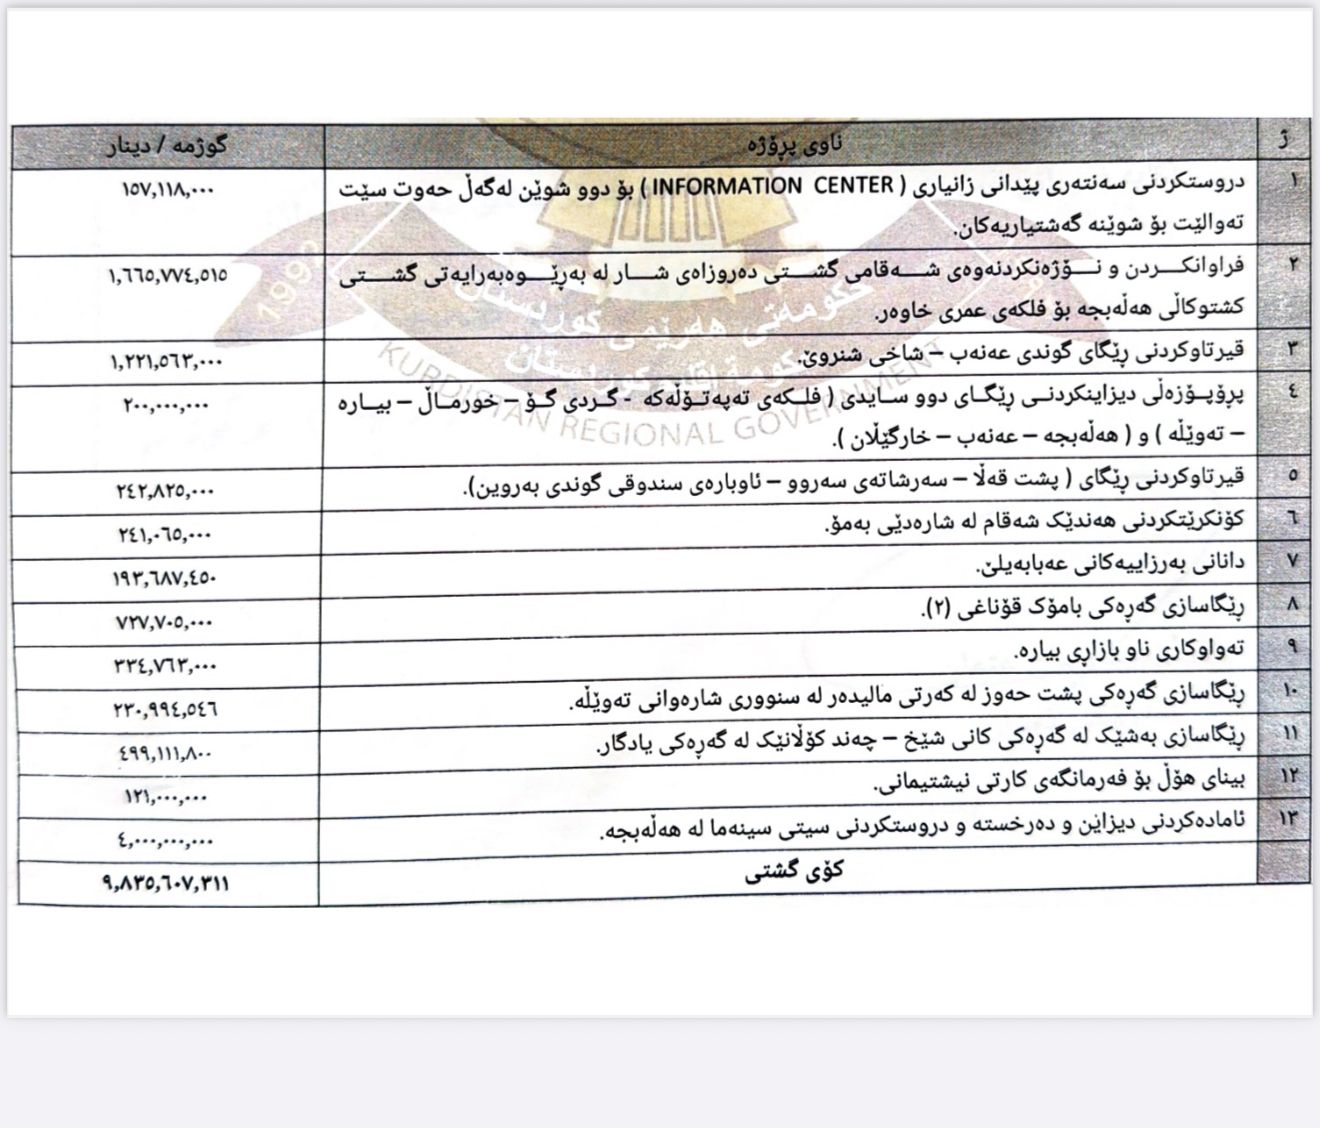 ژ ناوی پڕۆژە گوژمە / دینار
١ دروستکردنی سەنتەری پێدانی زانیاری ( INFORMATION CENTER ) بۆ دوو شوێن لەگەڵ حەوت سێت ١٥٧,١١٨,٠٠٠
تەوالێت بۆ شوێنە گەشتیاریەکان.
٢ فراوانکردن و نۆژەنکردنەوەی شەقامی گشتی دەروازەی شار لە بەڕێوەبەرایەتی گشتی ١,٦٦٥,٧٧٤,٥١٥
کشتوکاڵی هەڵەبجە بۆ فلکەی عمری خاوەر.
٣ قیرتاوکردنی ڕێگای گوندی عەنەب – شاخی شنروێ. ١,٢٢١,٥٦٣,٠٠٠
٤ پڕۆپۆزەڵی دیزاینکردنی ڕێگای دوو سایدی ( فلکەی تەپەتۆڵەکە - گردی گۆ – خورماڵ – بیارە ٢٠٠,٠٠٠,٠٠٠
– تەوێڵە ) و ( هەڵەبجە – عەنەب – خارگێڵان ).
٥ قیرتاوکردنی ڕێگای ( پشت قەڵا – سەرشاتەی سەروو – ئاوبارەی سندوقی گوندی بەروین). ٢٤٢,٨٢٥,٠٠٠
٦ کۆنکرێتکردنی هەندێک شەقام لە شارەدێی بەمۆ. ٢٤١,٠٦٥,٠٠٠
٧ دانانی بەرزاییەکانی عەبابەیلێ. ١٩٣,٦٨٧,٤٥٠
٨ ڕێگاسازی گەڕەکی بامۆک قۆناغی (٢). ٧٢٧,٧٠٥,٠٠٠
٩ تەواوکاری ناو بازاڕی بیارە. ٣٣٤,٧٦٣,٠٠٠
١٠ ڕێگاسازی گەڕەکی پشت حەوز لە کەرتی مالیدەر لە سنووری شارەوانی تەوێڵە. ٢٣٠,٩٩٤,٥٤٦
١١ ڕێگاسازی بەشێک لە گەڕەکی کانی شێخ – چەند کۆڵانێک لە گەڕەکی یادگار. ٤٩٩,١١١,٨٠٠
١٢ بینای هۆڵ بۆ فەرمانگەی کارتی نیشتیمانی. ١٢١,٠٠٠,٠٠٠
١٣ ئامادەکردنی دیزاێن و دەرخستە و دروستکردنی سیتی سینەما لە هەڵەبجە. ٤,٠٠٠,٠٠٠,٠٠٠
کۆی گشتی ٩,٨٣٥,٦٠٧,٣١١
1992
حکومەتی هەرێمی کوردستان
KURDISTAN REGIONAL GOVERNMENT